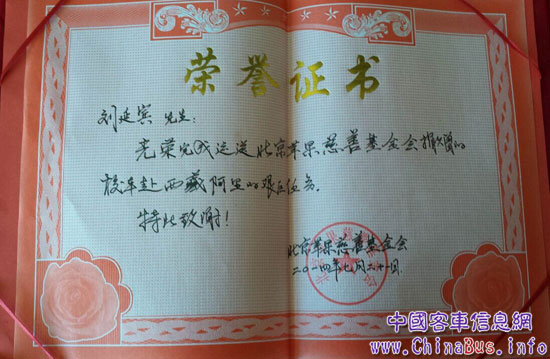 荣誉证书
刘延宾 先生:
光荣完成运送北京苹果慈善基金会捐资的
校车赴西藏阿里的艰巨任务。
特此致谢!
北京苹果慈善基金会
二〇一四年七月二十一日
中國客車信息網
www.ChinaBus.info